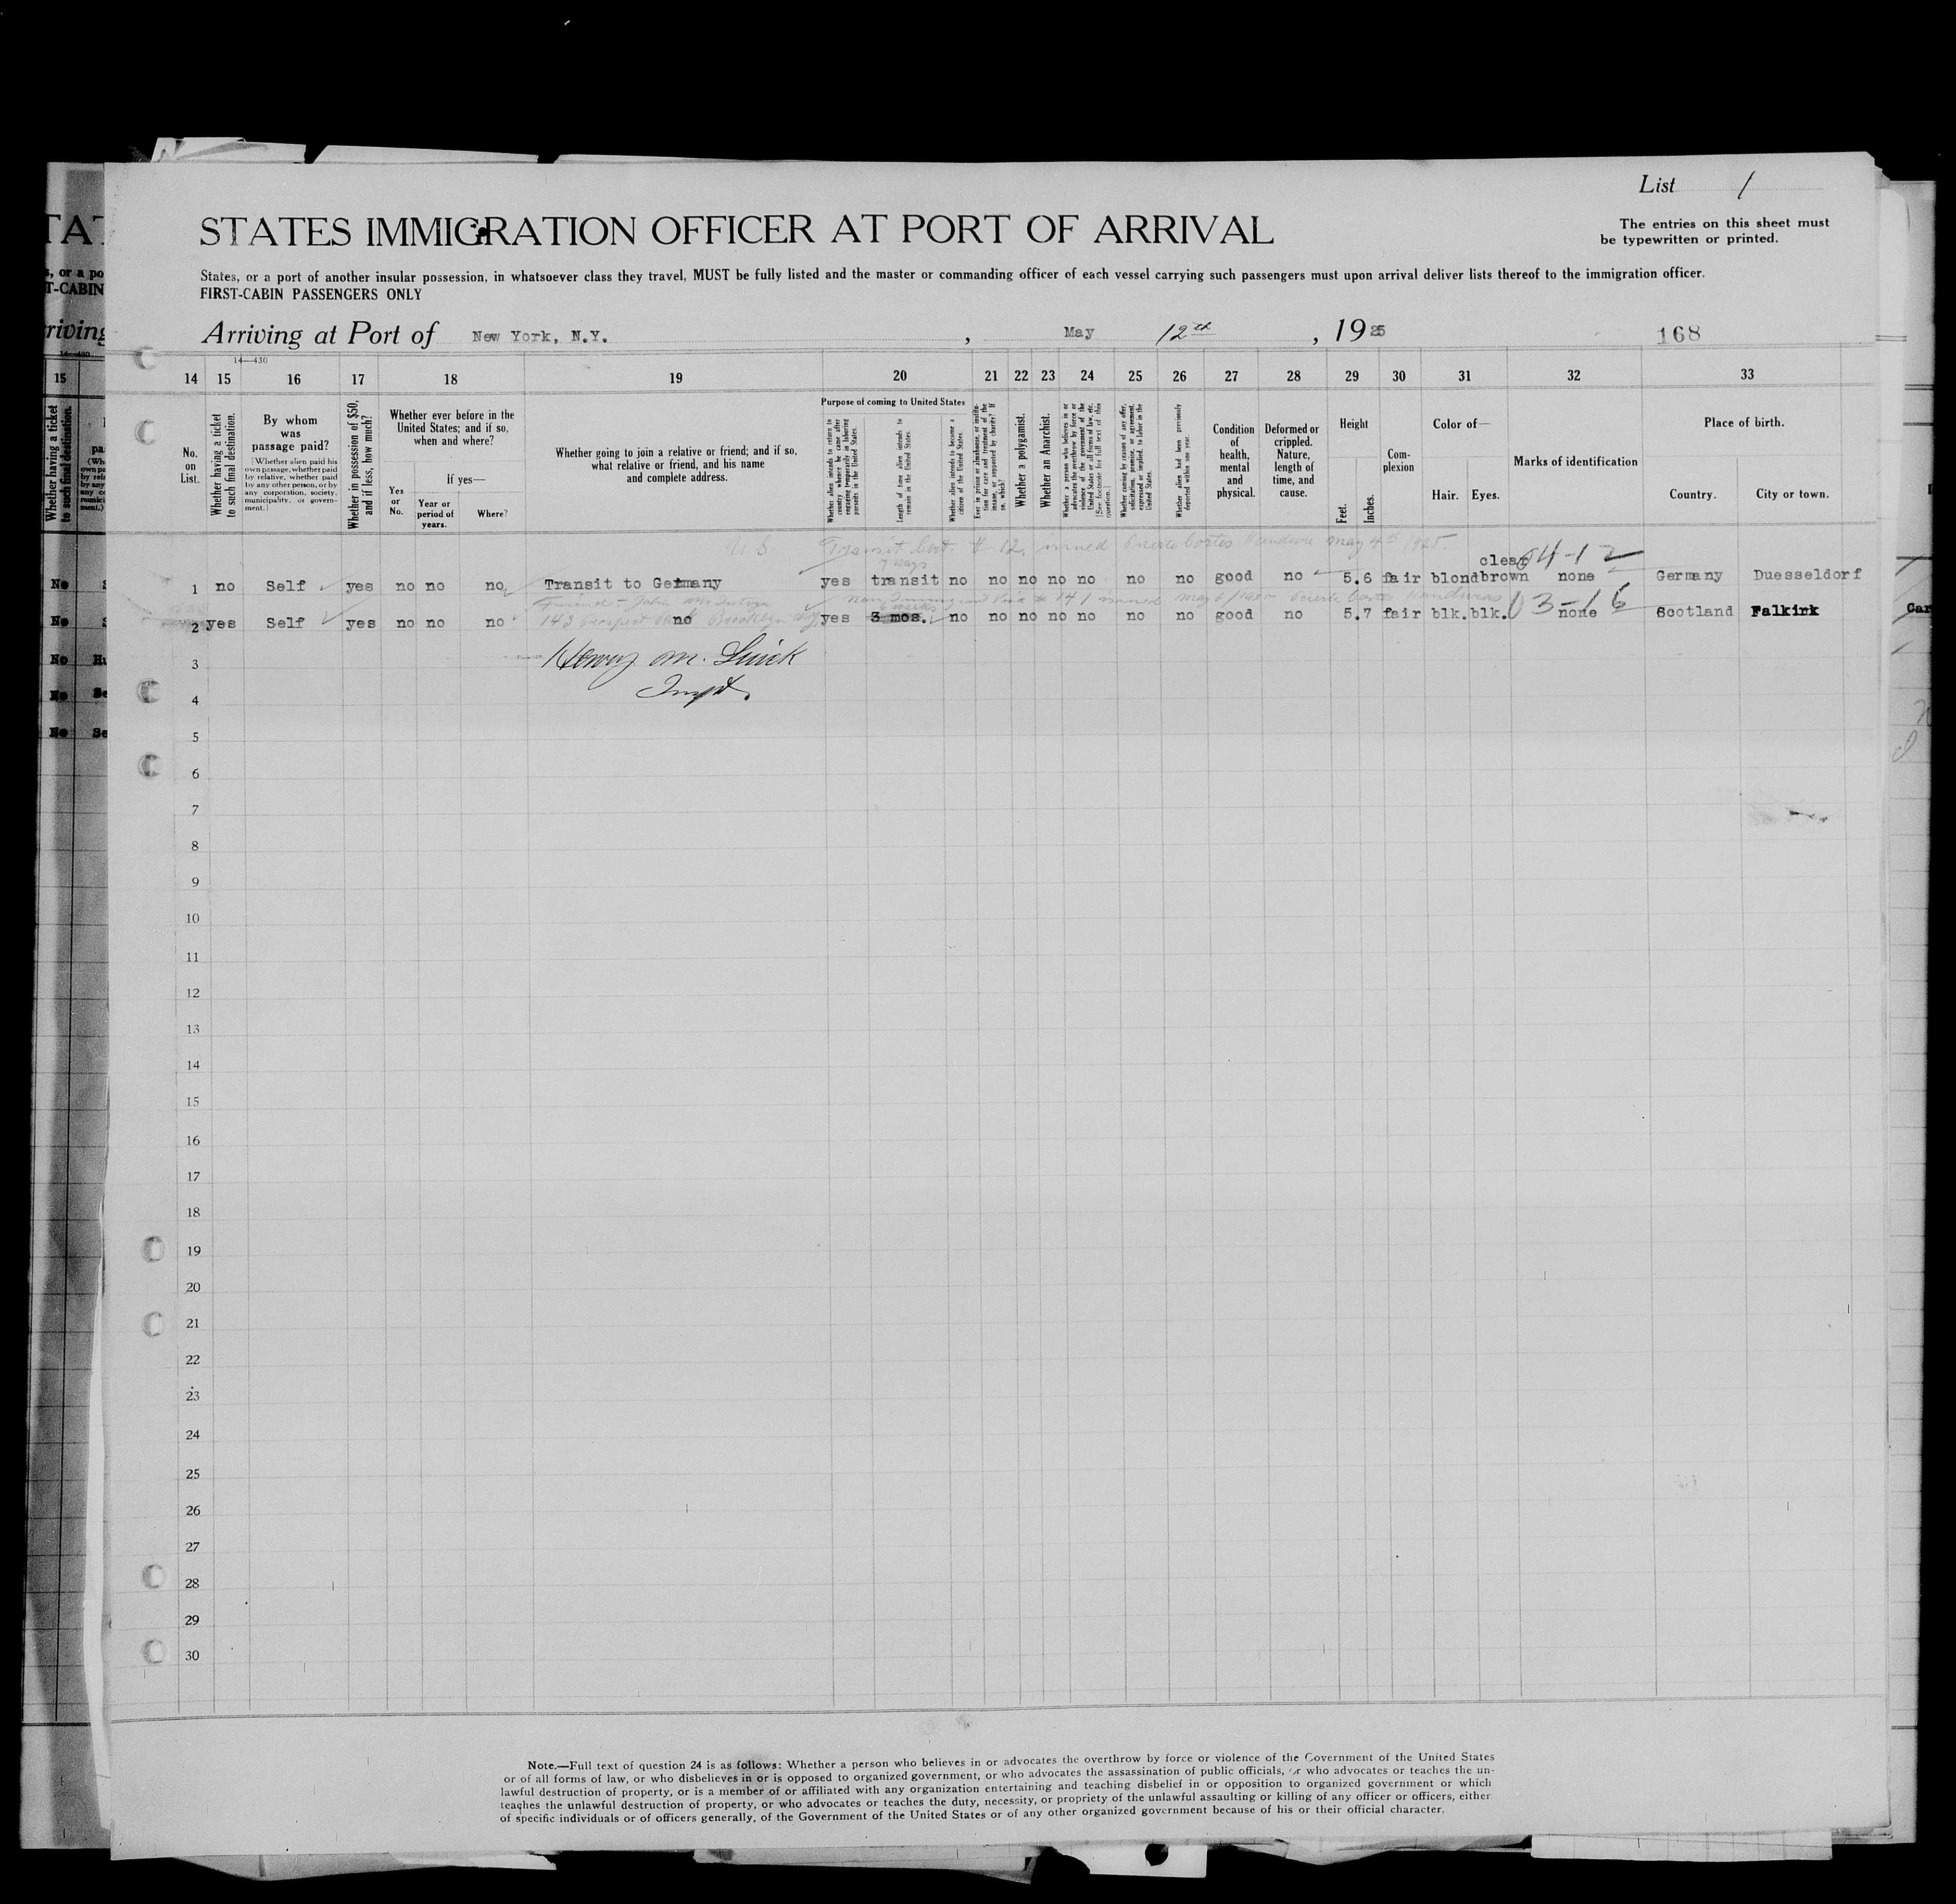 List 1
STATES IMMIGRATION OFFICER AT PORT OF ARRIVAL
The entries on this sheet must
be typewritten or printed.
States, or a port of another insular possession, in whatsoever class they travel, MUST be fully listed and the master or commanding officer of each vessel carrying such passengers must upon arrival deliver lists thereof to the immigration officer.
FIRST-CABIN PASSENGERS ONLY
Arriving at Port of New York, N.Y. , May 12th , 1925 168
14—430
14 15 16 17 18 19 20 21 22 23 24 25 26 27 28 29 30 31 32 33
No. on List.
Whether having a ticket to such final destination.
By whom was passage paid?
[Whether alien paid his own passage, whether paid by relative, whether paid by any other person, or by any corporation, society, municipality, or government.]
Whether in possession of $50, and if less, how much?
Whether ever before in the United States; and if so, when and where?
Yes or No.
If yes—
Year or period of years.
Where?
Whether going to join a relative or friend; and if so, what relative or friend, and his name and complete address.
Purpose of coming to United States
Whether alien intends to return to country whence he came after engaging temporarily in laboring pursuits in the United States.
Length of time alien intends to remain in the United States.
Whether alien intends to become a citizen of the United States.
Ever in prison or almshouse, or institution for care and treatment of the insane, or supported by charity? If so, which?
Whether a polygamist.
Whether an Anarchist.
Whether a person who believes in or advocates the overthrow by force or violence of the government of the United States or all forms of law, etc. [See footnote for full text of this question.]
Whether coming by reason of any offer, solicitation, promise, or agreement, expressed or implied, to labor in the United States.
Whether alien had been previously deported within one year.
Condition of health, mental and physical.
Deformed or crippled. Nature, length of time, and cause.
Height
Feet. Inches.
Complexion
Color of—
Hair. Eyes.
Marks of identification
Place of birth.
Country. City or town.
U.S. Transit Cert. # 12, issued Puerto Cortes Honduras May 4th 1925.
7 days clear 04-12
1 no Self yes no no no Transit to Germany yes transit no no no no no no no good no 5.6 fair blond brown none Germany Duesseldorf
Friend - John
non Immigrant Visa # 141 issued May 6/1925 Puerto Cortes Honduras 3-16
6 weeks
2 yes Self yes no no no 143 Prospect Park Brooklyn no yes 3 mos. no no no no no no no good no 5.7 fair blk. blk. none Scotland Falkirk
3 Henry M.
4 Inspt.
5
6
7
8
9
10
11
12
13
14
15
16
17
18
19
20
21
22
23
24
25
26
27
28
29
30
Note.—Full text of question 24 is as follows: Whether a person who believes in or advocates the overthrow by force or violence of the Government of the United States
or of all forms of law, or who disbelieves in or is opposed to organized government, or who advocates the assassination of public officials, or who advocates or teaches the un-
lawful destruction of property, or is a member of or affiliated with any organization entertaining and teaching disbelief in or opposition to organized government or which
teaches the unlawful destruction of property, or who advocates or teaches the duty, necessity, or propriety of the unlawful assaulting or killing of any officer or officers, either
of specific individuals or of officers generally, of the Government of the United States or of any other organized government because of his or their official character.